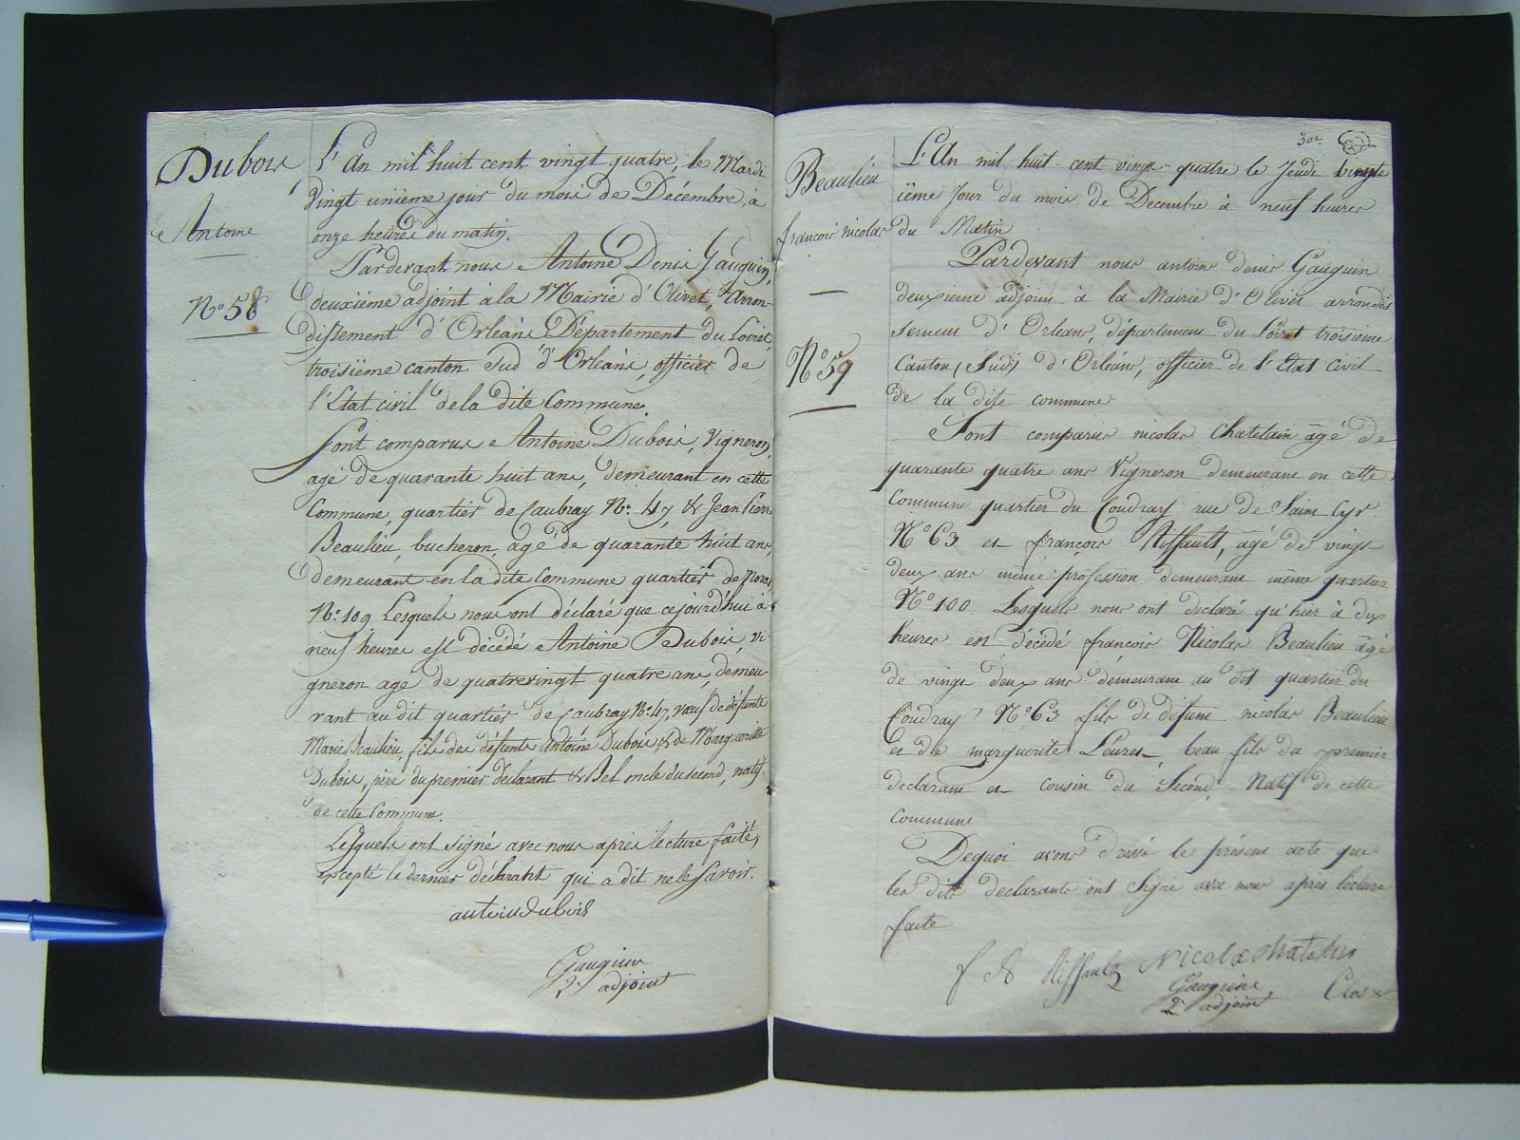 Dubois
Antoine
N° 58
L'An mil huit cent vingt quatre, le Mardi
vingt uniième jour du mois de Décembre, à
onze heures du matin.
Pardevant nous Antoine Denis Gauguin,
deuxiième adjoint à la Mairie d'Olivet, Arron-
dissement d'Orléans Département du Loiret,
troisiième canton Sud d'Orléans, officier de
l'Etat civil de la dite Commune.
Sont comparus Antoine Dubois, Vigneron,
agé de quarante huit ans, demeurant en cette
Commune, quartier de Caubray N°. 47 & Jean Pierre
Beaulieu, bucheron, agé de quarante huit ans,
demeurant en la dite Commune quartier de
N°. 109 Lesquels nous ont déclaré que cejourd'hui à
neuf heures est décédé Antoine Dubois, vi-
gneron agé de quatrevingt quatre ans, demeu
rant au dit quartier de Caubray N°. 47, veuf de défunte
Marie Beaulieu, fils des défunts Antoine Dubois & de Marguerite
Dubois, père du premier déclarant & Bel oncle du second, natif
de cette Commune.
Lesquels ont signé avec nous après lecture faite,
excepté le dernier déclarant qui a dit ne le savoir.
antoine dubois
Gauguin
2e adjoint
302
Beaulieu
françois nicolas
N° 59
L'An mil huit cent vingt quatre le Jeudi vingt
ième Jour du mois de Decembre à neuf heures
du Matin
Pardevant nous antoine denis Gauguin
deuxieme adjoint à la Mairie d'Olivet arrondis
sement d'Orléans, département du Loiret troisieme
Canton, Sud, d'Orléans, officier de l'Etat Civil
de la dite commune
Sont comparus nicolas Chatelain âgé de
quarante quatre ans Vigneron demeurant en cette
Commune quartier du Coudray rue de Saint Cyr
N° 63 et françois Riffault, agé de vingt
deux ans même profession demeurant même quartier
N° 100 Lesquels nous ont declaré qu'hier à dix
heures est décédé françois Nicolas Beaulieu âgé
de vingt deux ans demeurant au dit quartier du
Coudray N° 63 fils de défunt nicolas Beaulieu
et de marguerite beau fils du premier
declarant et cousin du Second, Natif de cette
Commune
Dequoi avons dréssé le présent acte que
les dits declarants ont signé avec nous après lecture
faite
Riffault Nicolas Chatelain
Gauguin
2e adjoint
Clos